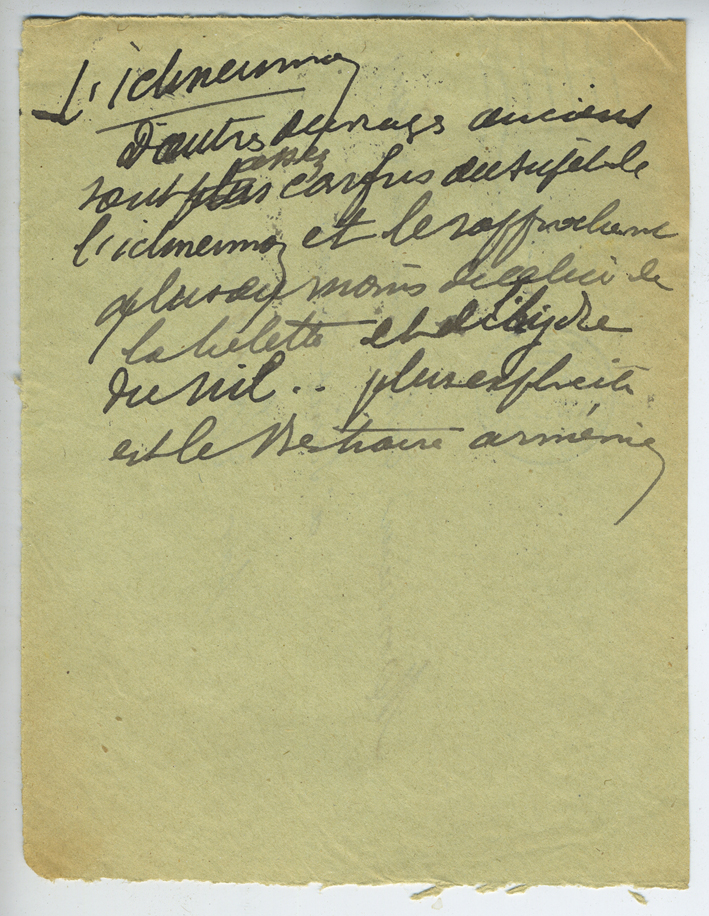 L'ichneumon
D'autres ouvrages anciens
assez
sont plus confus au sujet de
l'ichneumon et le rapprochent
plus ou moins de celui de
la belette et de l'hydre
du Nil .. plus explicite
est le Bestiaire arménien